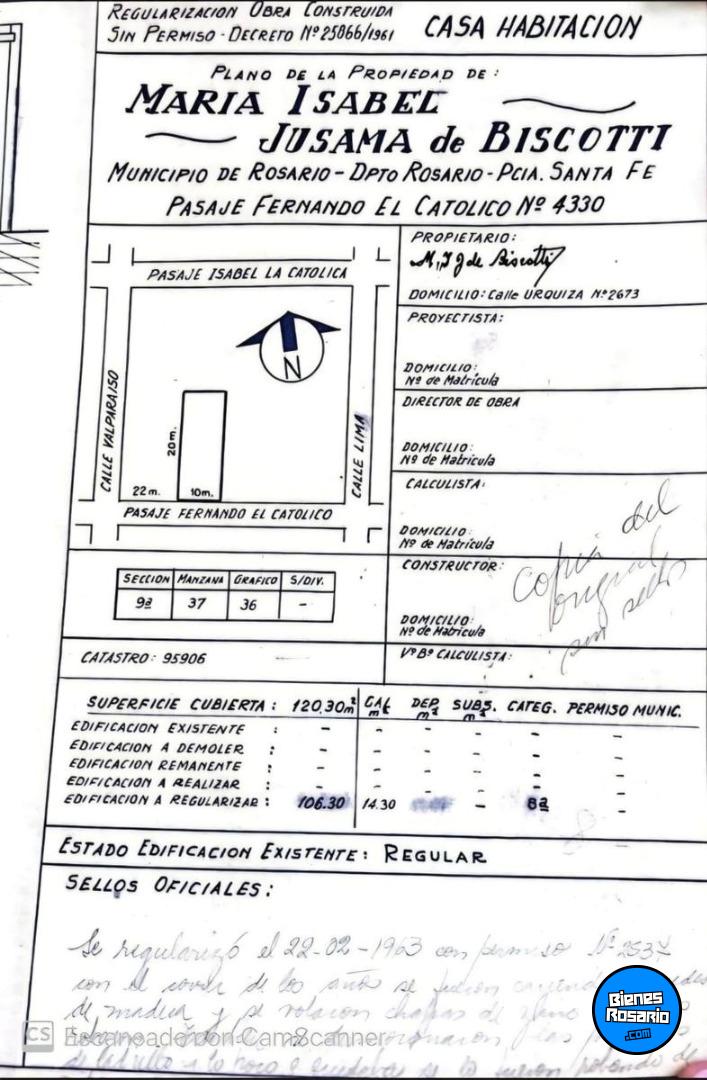 REGULARIZACION OBRA CONSTRUIDA
SIN PERMISO - DECRETO Nº 25866/1961
CASA HABITACION
PLANO DE LA PROPIEDAD DE:
MARIA ISABEL
JUSAMA de BISCOTTI
MUNICIPIO DE ROSARIO - DPTO ROSARIO - PCIA. SANTA FE
PASAJE FERNANDO EL CATOLICO Nº 4330
PASAJE ISABEL LA CATOLICA
N
CALLE VALPARAISO
20m.
CALLE LIMA
22m. 10m.
PASAJE FERNANDO EL CATOLICO
SECCION MANZANA GRAFICO S/DIV.
9ª 37 36 -
CATASTRO: 95906
PROPIETARIO:
M. I J de Biscotti
DOMICILIO: Calle URQUIZA Nº 2673
PROYECTISTA:
DOMICILIO:
Nº de Matrícula
DIRECTOR DE OBRA
DOMICILIO:
Nº de Matrícula
CALCULISTA:
DOMICILIO:
Nº de Matrícula
CONSTRUCTOR:
DOMICILIO:
Nº de Matrícula
VºBº CALCULISTA:
copia del
original
sin sellos
SUPERFICIE CUBIERTA: 120,30m² GAL m² DEP. m² SUBS. m² CATEG. PERMISO MUNIC.
EDIFICACION EXISTENTE : - - - - - -
EDIFICACION A DEMOLER : - - - - - -
EDIFICACION REMANENTE : - - - - - -
EDIFICACION A REALIZAR : - - - - - -
EDIFICACION A REGULARIZAR : 106.30 14.30 - 8ª -
ESTADO EDIFICACION EXISTENTE: REGULAR
SELLOS OFICIALES:
Se regularizó el 22-02-1963 con permiso Nº 2537
con el correr de los años se fueron
de madera y se volaron chapas de
CS Escaneado con CamScanner
Bienes
Rosario
.com